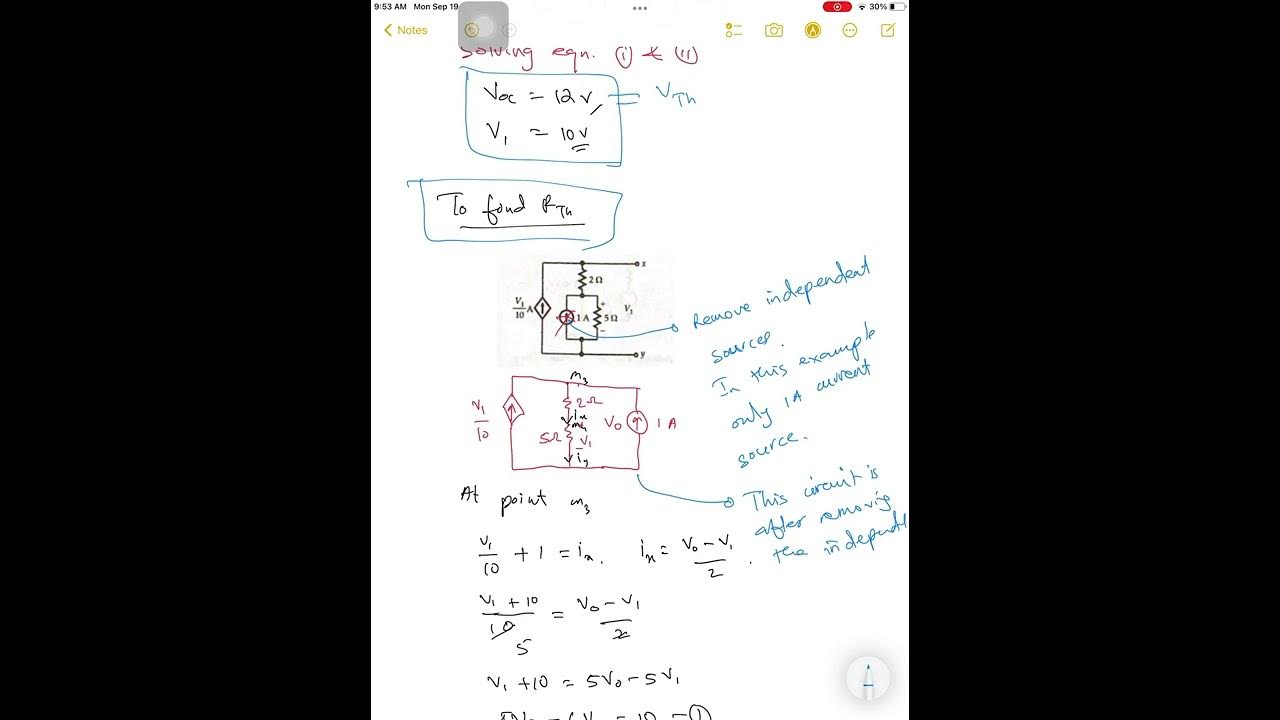 9:53 AM Mon Sep 19
30%
Notes
Solving eqn. (i) & (ii)
Voc = 12V = VTh
V1 = 10V
To find RTh
x
2Ω
V1/10 A
1 A
5Ω
+
V1
−
y
Remove independent
sources.
In this example
only 1A current
source.
m3
2Ω
ix
V1/10
5Ω
V1
iy
V0
1 A
This circuit is
after removing
the independ
At point m3
V1/10 + 1 = ix. ix = V0 − V1/2 .
V1 + 10/10 = V0 − V1/2
5
V1 + 10 = 5V0 − 5V1